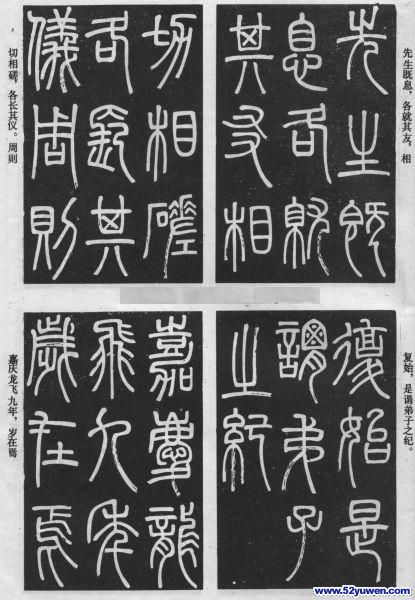 先生既息，各就其友，相
先生既
息各就
其友相
切相磋
各長其
儀周則
切相磋，各长其仪。周则
复始，是谓弟子之纪。
復始是
謂弟子
之紀
嘉慶龍
飛九年
歲在焉
嘉庆龙飞九年，岁在焉
www.52yuwen.com